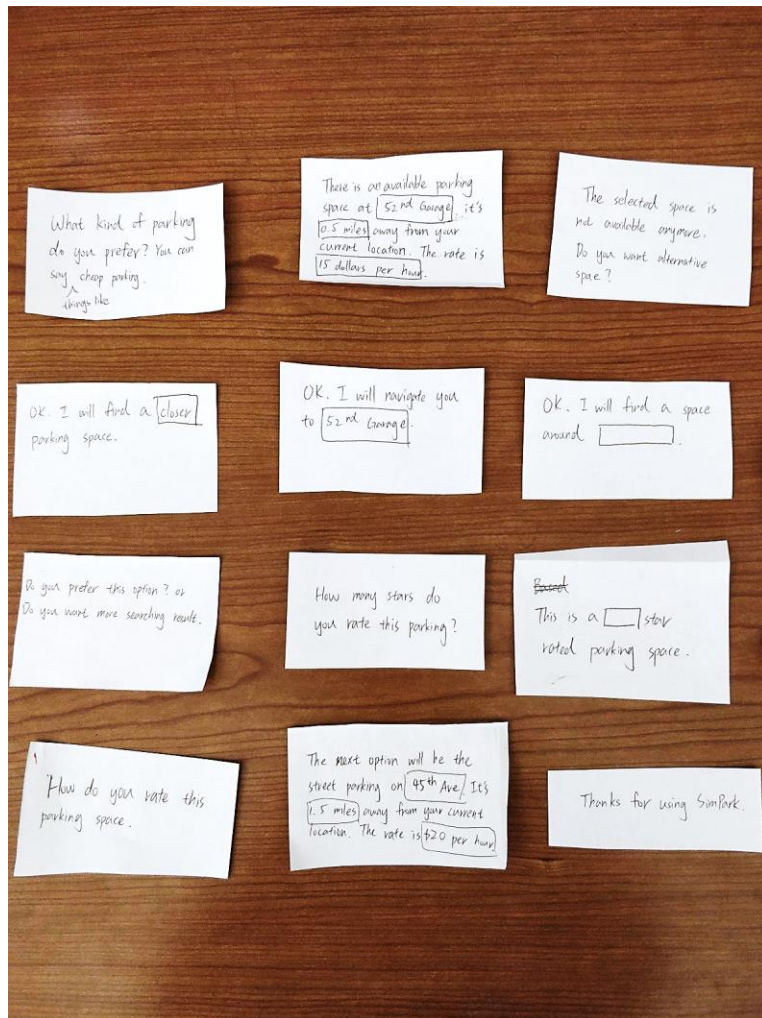 What kind of parking
do you prefer? You can
say cheap parking.
things like
There is an available parking
space at 52nd Garage. it's
0.5 miles away from your
current location. The rate is
15 dollars per hour.
The selected space is
not available anymore.
Do you want alternative
spae?
OK. I will find a closer
parking space.
OK. I will navigate you
to 52nd Garage.
OK. I will find a space
around .
Do you prefer this option? or
Do you want more searching result.
How many stars do
you rate this parking?
Based
This is a star
rated parking space.
How do you rate this
parking space.
The next option will be the
street parking on 45th Ave. It's
1.5 miles away from your current
location. The rate is $20 per hour
Thanks for using SimPark.